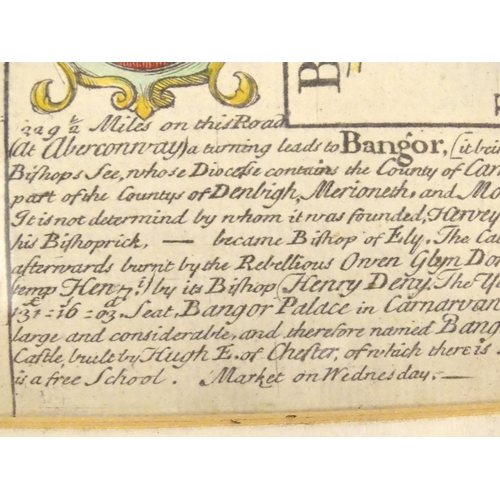 B
329 ½ Miles on this Road
(At Aberconway) a turning leads to Bangor, (it bei
Bishops See, whose Diocesse contains the County of Car
part of the Countys of Denbigh, Merioneth, and Mo
It is not determind by whom it was founded, Hervey
his Bishoprick, — became Bishop of Ely. The Ca
afterwards burnt by the Rebellious Owen Glyn Do
temp Hen: 7:) by its Bishop (Henry Deny. The
131=16=03. Seat, Bangor Palace in Carnarvan
large and considerable, and therefore named Bang
Castle, built by Hugh E. of Chester, of which there is
is a free School. Market on Wednesday. —